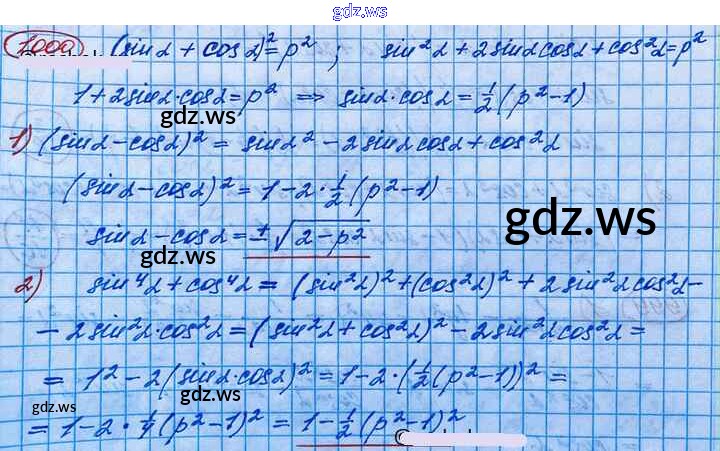 gdz.ws
1000 (sin α + cos α)² = p² ; sin²α + 2 sin α cos α + cos²α = p²
1 + 2 sin α · cos α = p² ⇒ sin α · cos α = ½ (p² − 1)
gdz.ws
1) (sin α − cos α)² = sin α² − 2 sin α cos α + cos²α
(sin α − cos α)² = 1 − 2 · ½ (p² − 1)
gdz.ws
sin α − cos α = ± √(2 − p²)
gdz.ws
2) sin⁴α + cos⁴α = (sin²α)² + (cos²α)² + 2 sin²α cos²α −
− 2 sin²α · cos²α = (sin²α + cos²α)² − 2 sin²α cos²α =
= 1² − 2 (sin α · cos α)² = 1 − 2 · (½ (p² − 1))² =
gdz.ws
= 1 − 2 · ¼ (p² − 1)² = 1 − ½ (p² − 1)²
gdz.ws